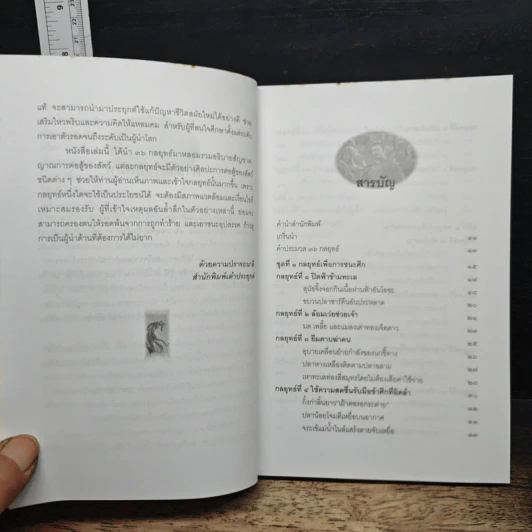 แท้ จะสามารถนำมาประยุกต์ใช้แก้ปัญหาชีวิตสมัยใหม่ได้อย่างดี ช่วย
เสริมไหวพริบและความคิดให้แหลมคม สำหรับผู้ที่สนใจศึกษาตั้งแต่ระดับ
การเอาตัวรอดจนถึงระดับเป็นผู้นำโลก
หนังสือเล่มนี้ ได้นำ ๓๖ กลยุทธ์มาหลอมรวมอธิบายสัญชาต
ญาณการต่อสู้ของสัตว์ แต่ละกลยุทธ์จะมีตัวอย่างศิลปะการต่อสู้ของสัตว์
ชนิดต่าง ๆ ช่วยให้ท่านผู้อ่านเห็นภาพและเข้าใจกลยุทธ์นั้นมากขึ้น เพราะ
กลยุทธ์หนึ่งใดจะใช้เป็นประโยชน์ได้ จะต้องมีสภาพแวดล้อมและเงื่อนไขที่
เหมาะสมรองรับ ผู้ที่เข้าใจเหตุผลอันล้ำลึกในตัวอย่างเหล่านี้ ย่อมจะ
สามารถครองตนให้รอดพ้นจากการถูกทำร้าย และเอาชนะอุปสรรค ก้าวสู่
การเป็นผู้นำด้านที่ต้องการได้ไม่ยาก
ด้วยความปรารถนาดี
สำนักพิมพ์เต๋าประยุกต์
สารบัญ
คำนำสำนักพิมพ์
เกริ่นนำ
คำประมวล ๓๖ กลยุทธ์
ชุดที่ ๑ กลยุทธ์เพื่อการชนะศึก
กลยุทธ์ที่ ๑ ปิดฟ้าข้ามทะเล
สุนัขจิ้งจอกกินเนื้อห่านฟ้าอันโอชะ
ขบวนปลาซาร์ดีนอันประหลาด
กลยุทธ์ที่ ๒ ล้อมเว่ยช่วยเจ้า
มด เพลี้ย และแมลงเต่าทองเจ็ดดาว
กลยุทธ์ที่ ๓ ยืมดาบฆ่าคน
อุบายเคลื่อนย้ายกำลังของนกชี้ทาง
ปลาหางเหลืองติดตามปลาฉลาม
เหาทะเลท่องสี่สมุทรโดยไม่ต้องเสียค่าใช้จ่าย
กลยุทธ์ที่ ๔ ใช้ความสดชื่นรับมือข้าศึกที่อิดล้า
กิ้งก่าลิ้นยาว"เฝ้าตอรอกระต่าย"
ปลาน้อยโจมตีเหยื่อบนอากาศ
จระเข้แม่น้ำไนล์แสร้งตายจับเหยื่อ